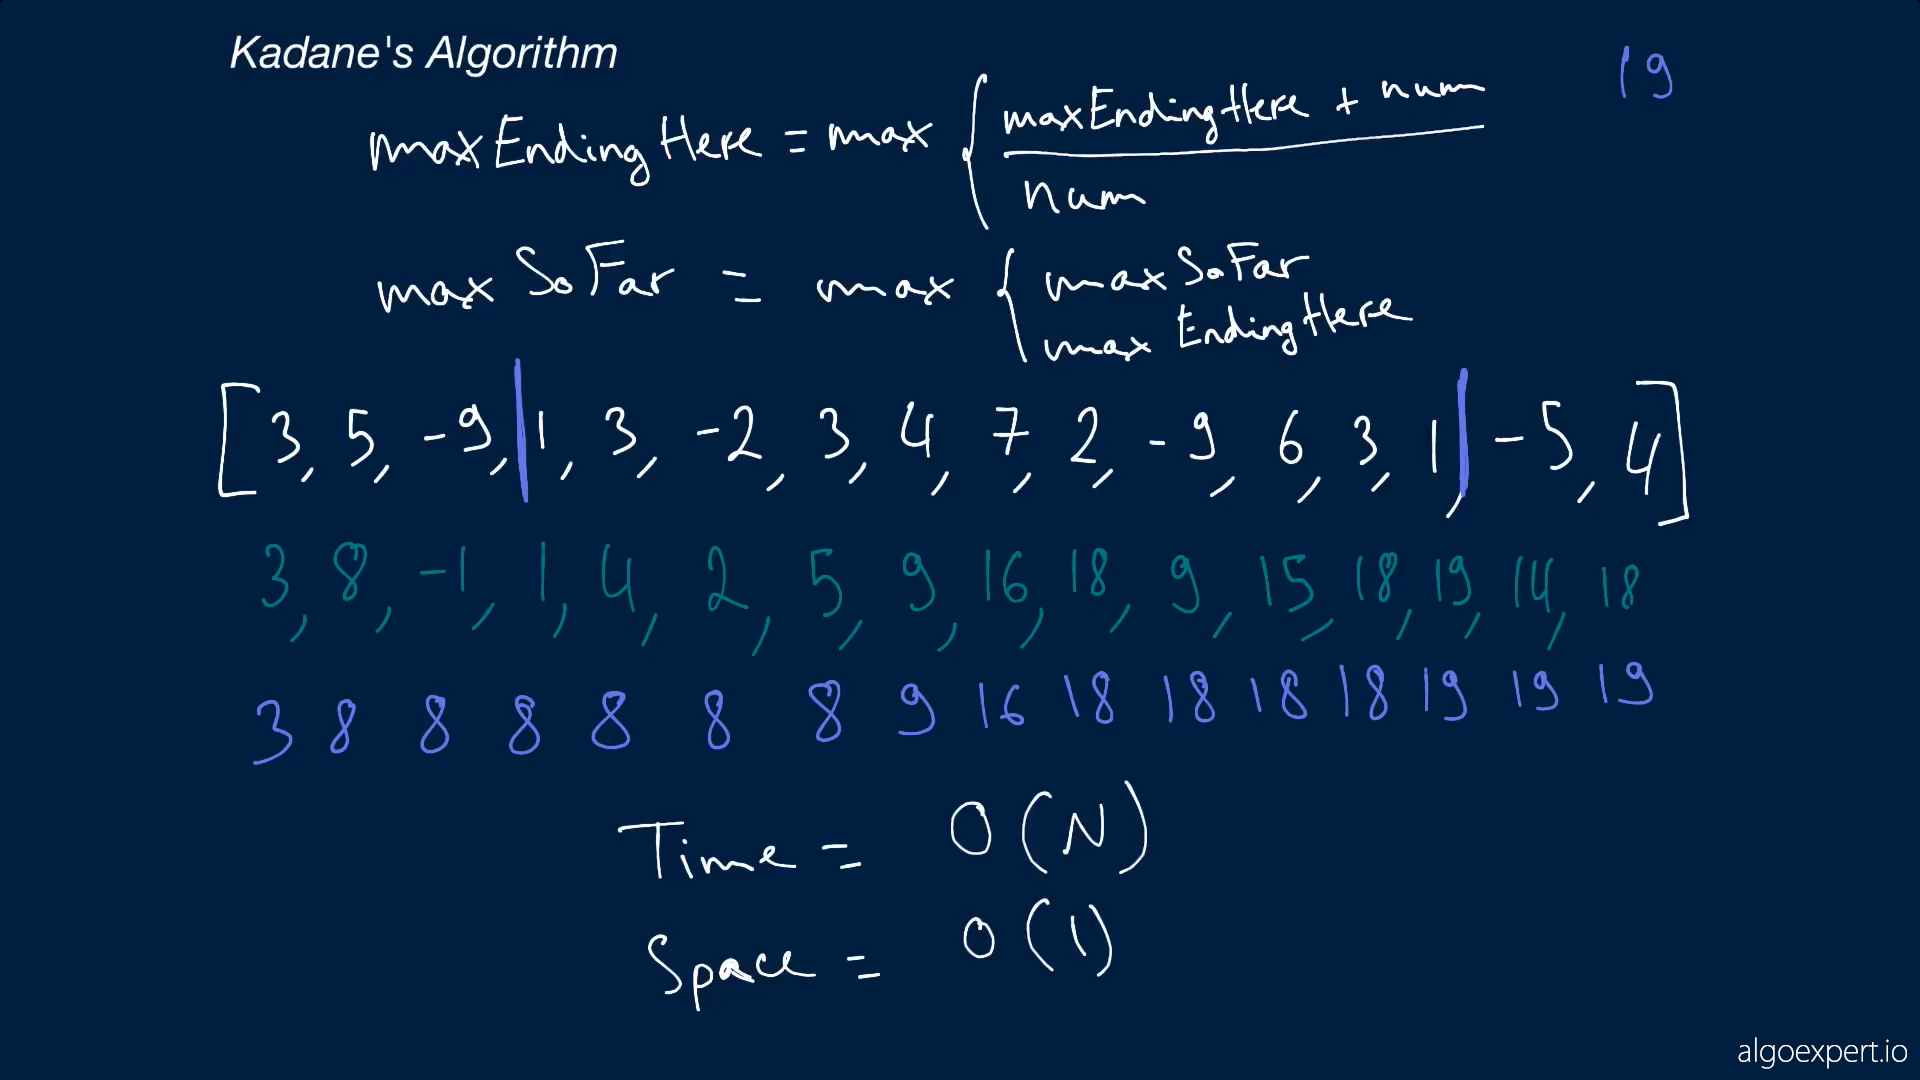 Kadane's Algorithm
19
maxEndingHere = max { maxEndingHere + num
num
maxSoFar = max { maxSoFar
maxEndingHere
[3, 5, -9, 1, 3, -2, 3, 4, 7, 2, -9, 6, 3, 1, -5, 4]
3, 8, -1, 1, 4, 2, 5, 9, 16, 18, 9, 15, 18, 19, 14, 18
3 8 8 8 8 8 8 9 16 18 18 18 18 19 19 19
Time = O(N)
Space = O(1)
algoexpert.io